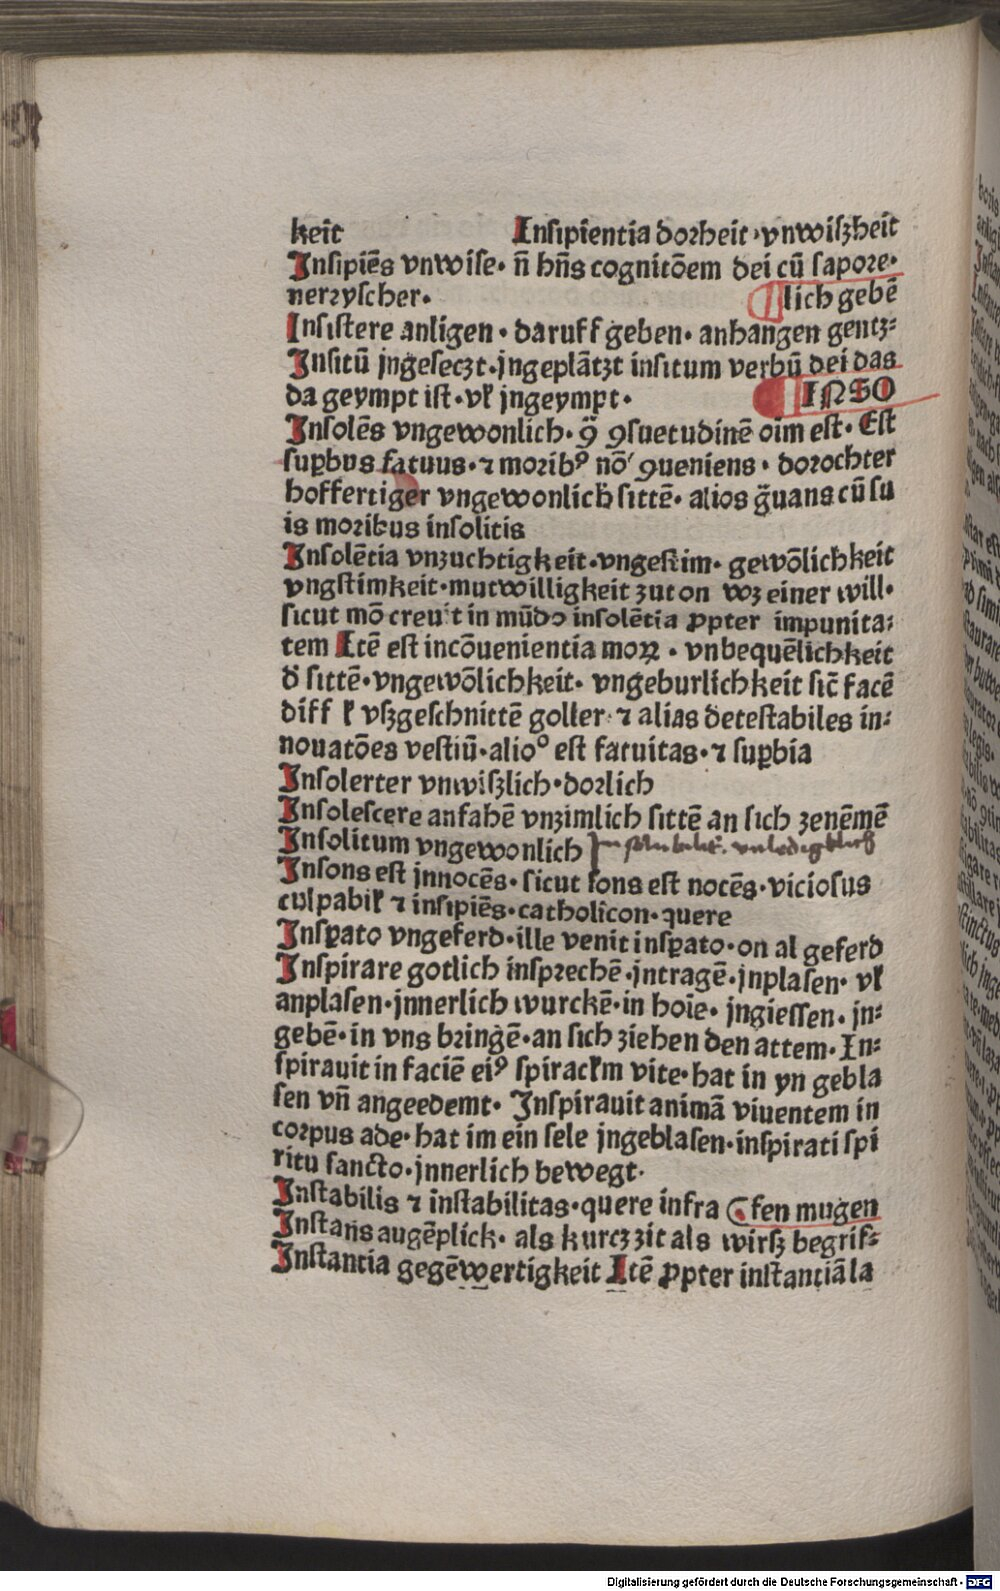 keit Insipientia dorheit·vnwiſzheit
Inſipiēs vnwiſe· ñ hñs cognitōem dei cū ſapore·
nerrÿſcher· lich gebē
Inſiſtere anligen · daruff geben· anhangen gentz⸗
Inſitū jngeſeczt·jngeplātzt inſitum verbū dei das
da geympt iſt·vł jngeympt· INSO
Inſolēs vngewonlich· ꝯſuetudinē oim eſt· Eſt
ſupbus fatuus·⁊ moribꝰ nō ꝯueniens· dorochter
hoffertiger vngewonlich ſittē· alios gͣuans cū ſu
is moribus inſolitis
Inſolētia vnzuchtigkeit·vngeſtim· gewōlichkeit
vngſtimkeit·mutwilligkeit zuton wz einer will·
ſicut mō creuit in mūdo inſolētia ꝓpter impunita⸗
tem Itē eſt incōuenientia moꝝ · vnbequēlichkeit
d̄ ſittē·vngewōlichkeit· vngeburlichkeit ſic̄ facē
diff ł vſzgeſchnittē goller·⁊ alias deteſtabiles in⸗
nouatōes veſtiū·alioꝰ eſt fatuitas·⁊ ſuꝑbia
Inſolerter vnwiſzlich·dorlich
Inſoleſcere anfahē vnzimlich ſittē an ſich zenēmē
Inſolitum vngewonlich
Inſons eſt jnnocēs·ſicut ſons eſt nocēs·vicioſus
culpabił ⁊ inſipiēs·catholicon·quere
Inſꝑato vngeferd·ille venit inſꝑato·on al geferd
Inſpirare gotlich inſprechē·jntragē·jnplaſen· vł
anplaſen·jnnerlich wurckē·in hoīe· jngieſſen· jn⸗
gebē·in vns bringē·an ſich ziehen den attem· In⸗
ſpirauit in faciē eiꝰ ſpiracłm vite·hat in yn gebla
ſen vñ angeedemt· Inſpirauit animā viuentem in
corpus ade·hat im ein ſele jngeblaſen·inſpirati ſpi
ritu ſancto·jnnerlich bewegt·
Inſtabilis ⁊ inſtabilitas·quere infra fen mugen
Inſtans augēplick· als kurcz zit als wirſz begrif⸗
Inſtantia gegēwertigkeit Itē ꝓpter inſtantiā la
Digitalisierung gefördert durch die Deutsche Forschungsgemeinschaft · DFG